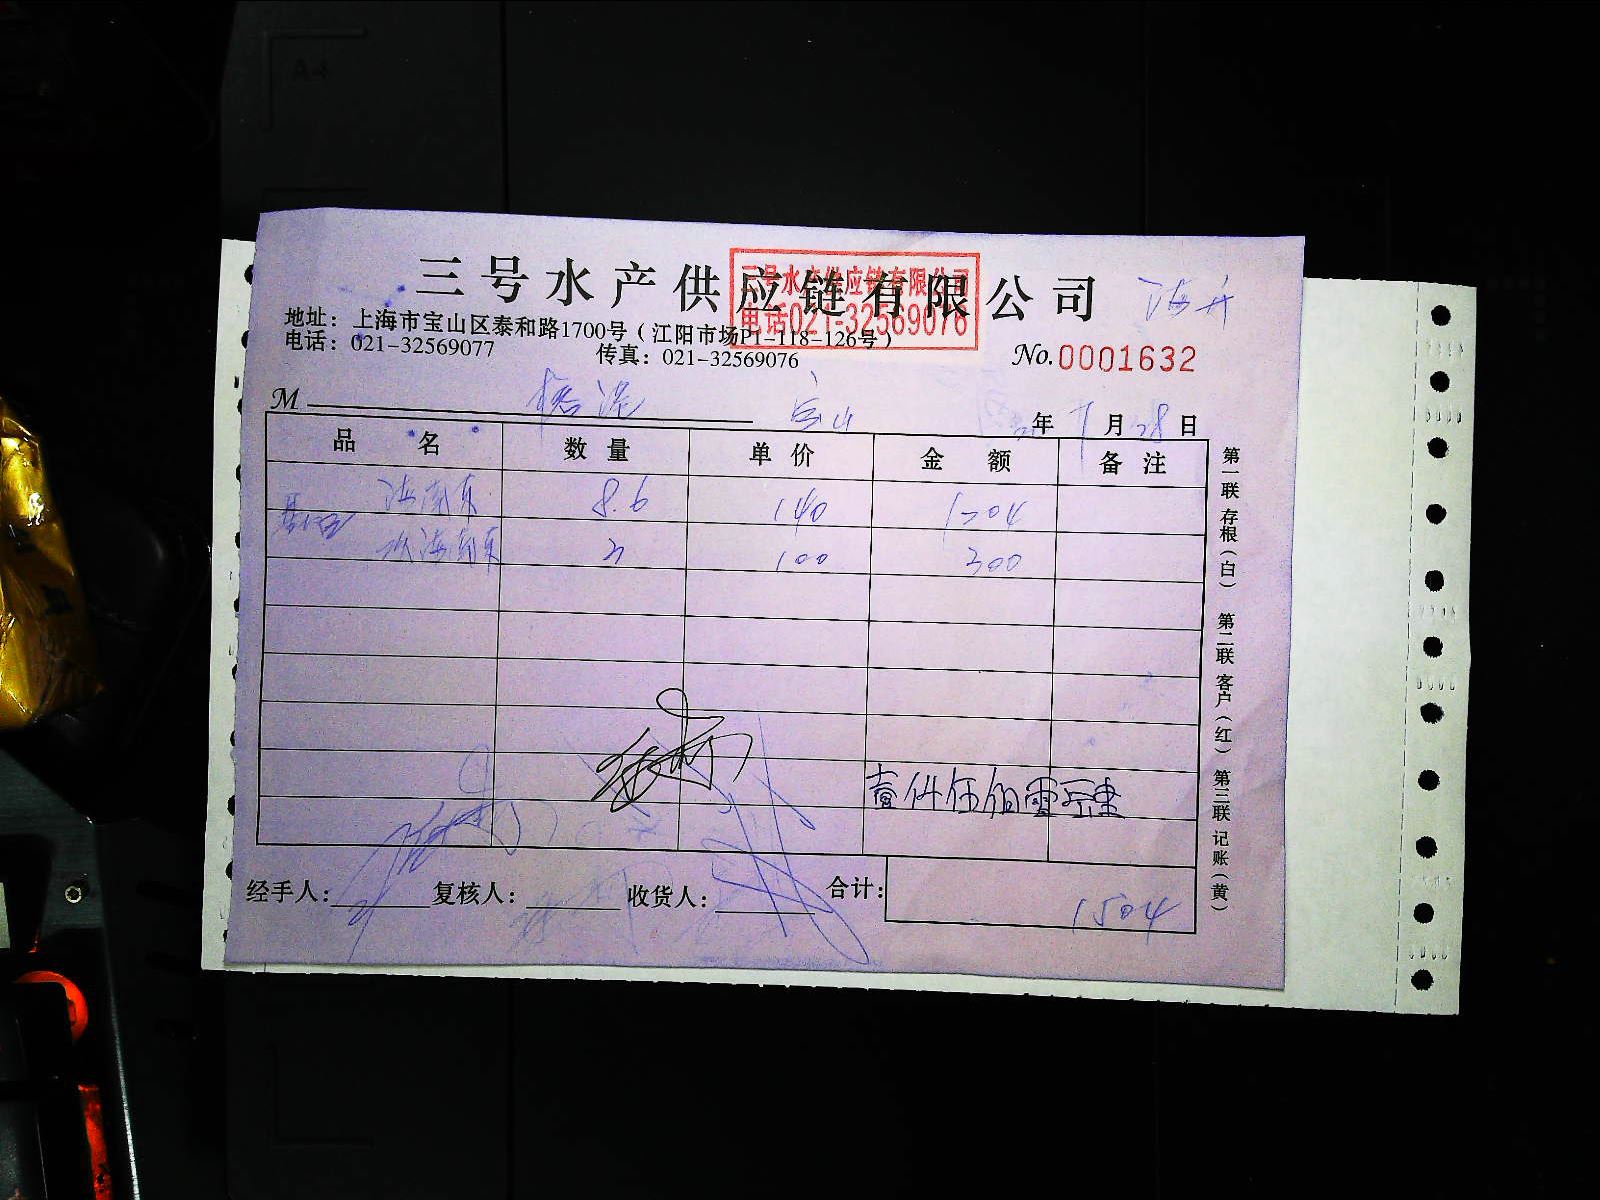 三号水产供应链有限公司
三号水产供应链有限公司
电话021-32569076
地址：上海市宝山区泰和路1700号（江阳市场P1-118-126号）
电话：021-32569077 传真：021-32569076
No.0001632
M 宝山 年 7月28日
品名 数量 单价 金额 备注
8.6 140 1204
3 100 300
壹仟伍佰零肆
经手人： 复核人： 收货人： 合计： 1504
第一联 存根（白） 第二联 客户（红） 第三联 记账（黄）